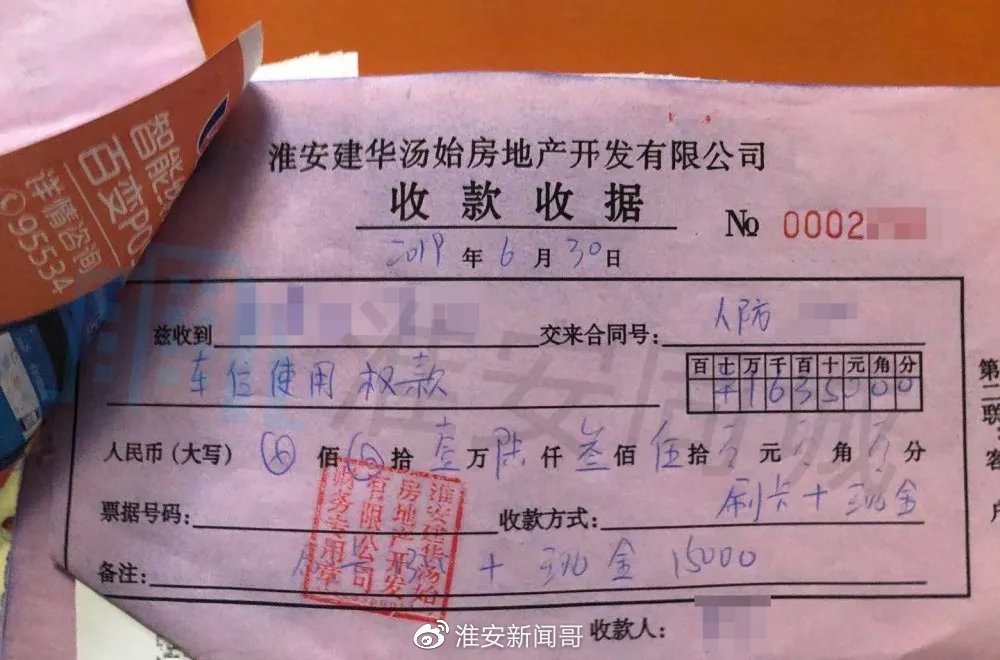 智能
百变PO
详情咨询
95534
淮安建华汤始房地产开发有限公司
收款收据
No 0002
2019 年 6 月 30 日
兹收到 交来合同号: 人防
车位使用权款
百 十 万 千 百 十 元 角 分
1 6 3 5 0 0 0
人民币(大写) 佰 拾 壹 万 陆 仟 叁 佰 伍 拾 零 元 零 角 零 分
票据号码: 收款方式: 刷卡+现金
备注: + 现金 15000
收款人:
淮安建华汤始
房地产开发
有限公司
财务专用章
第二联
客户
淮安同城
淮安新闻哥